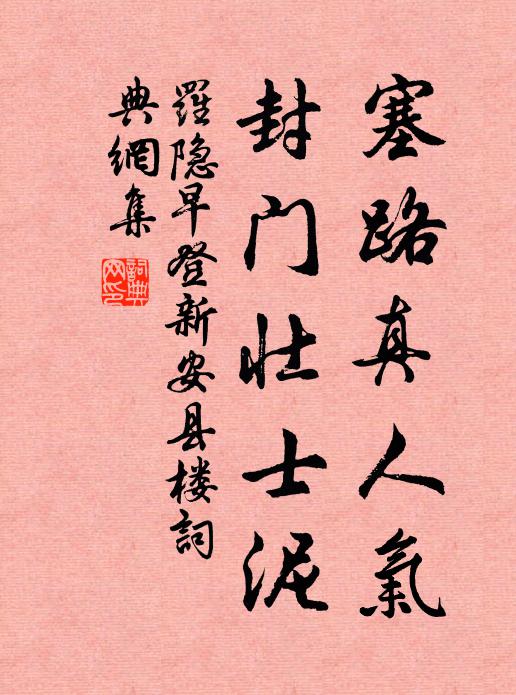 塞路真人氣
封门壮士泥
羅隐早登新安县楼詞
典網集
詞典网印